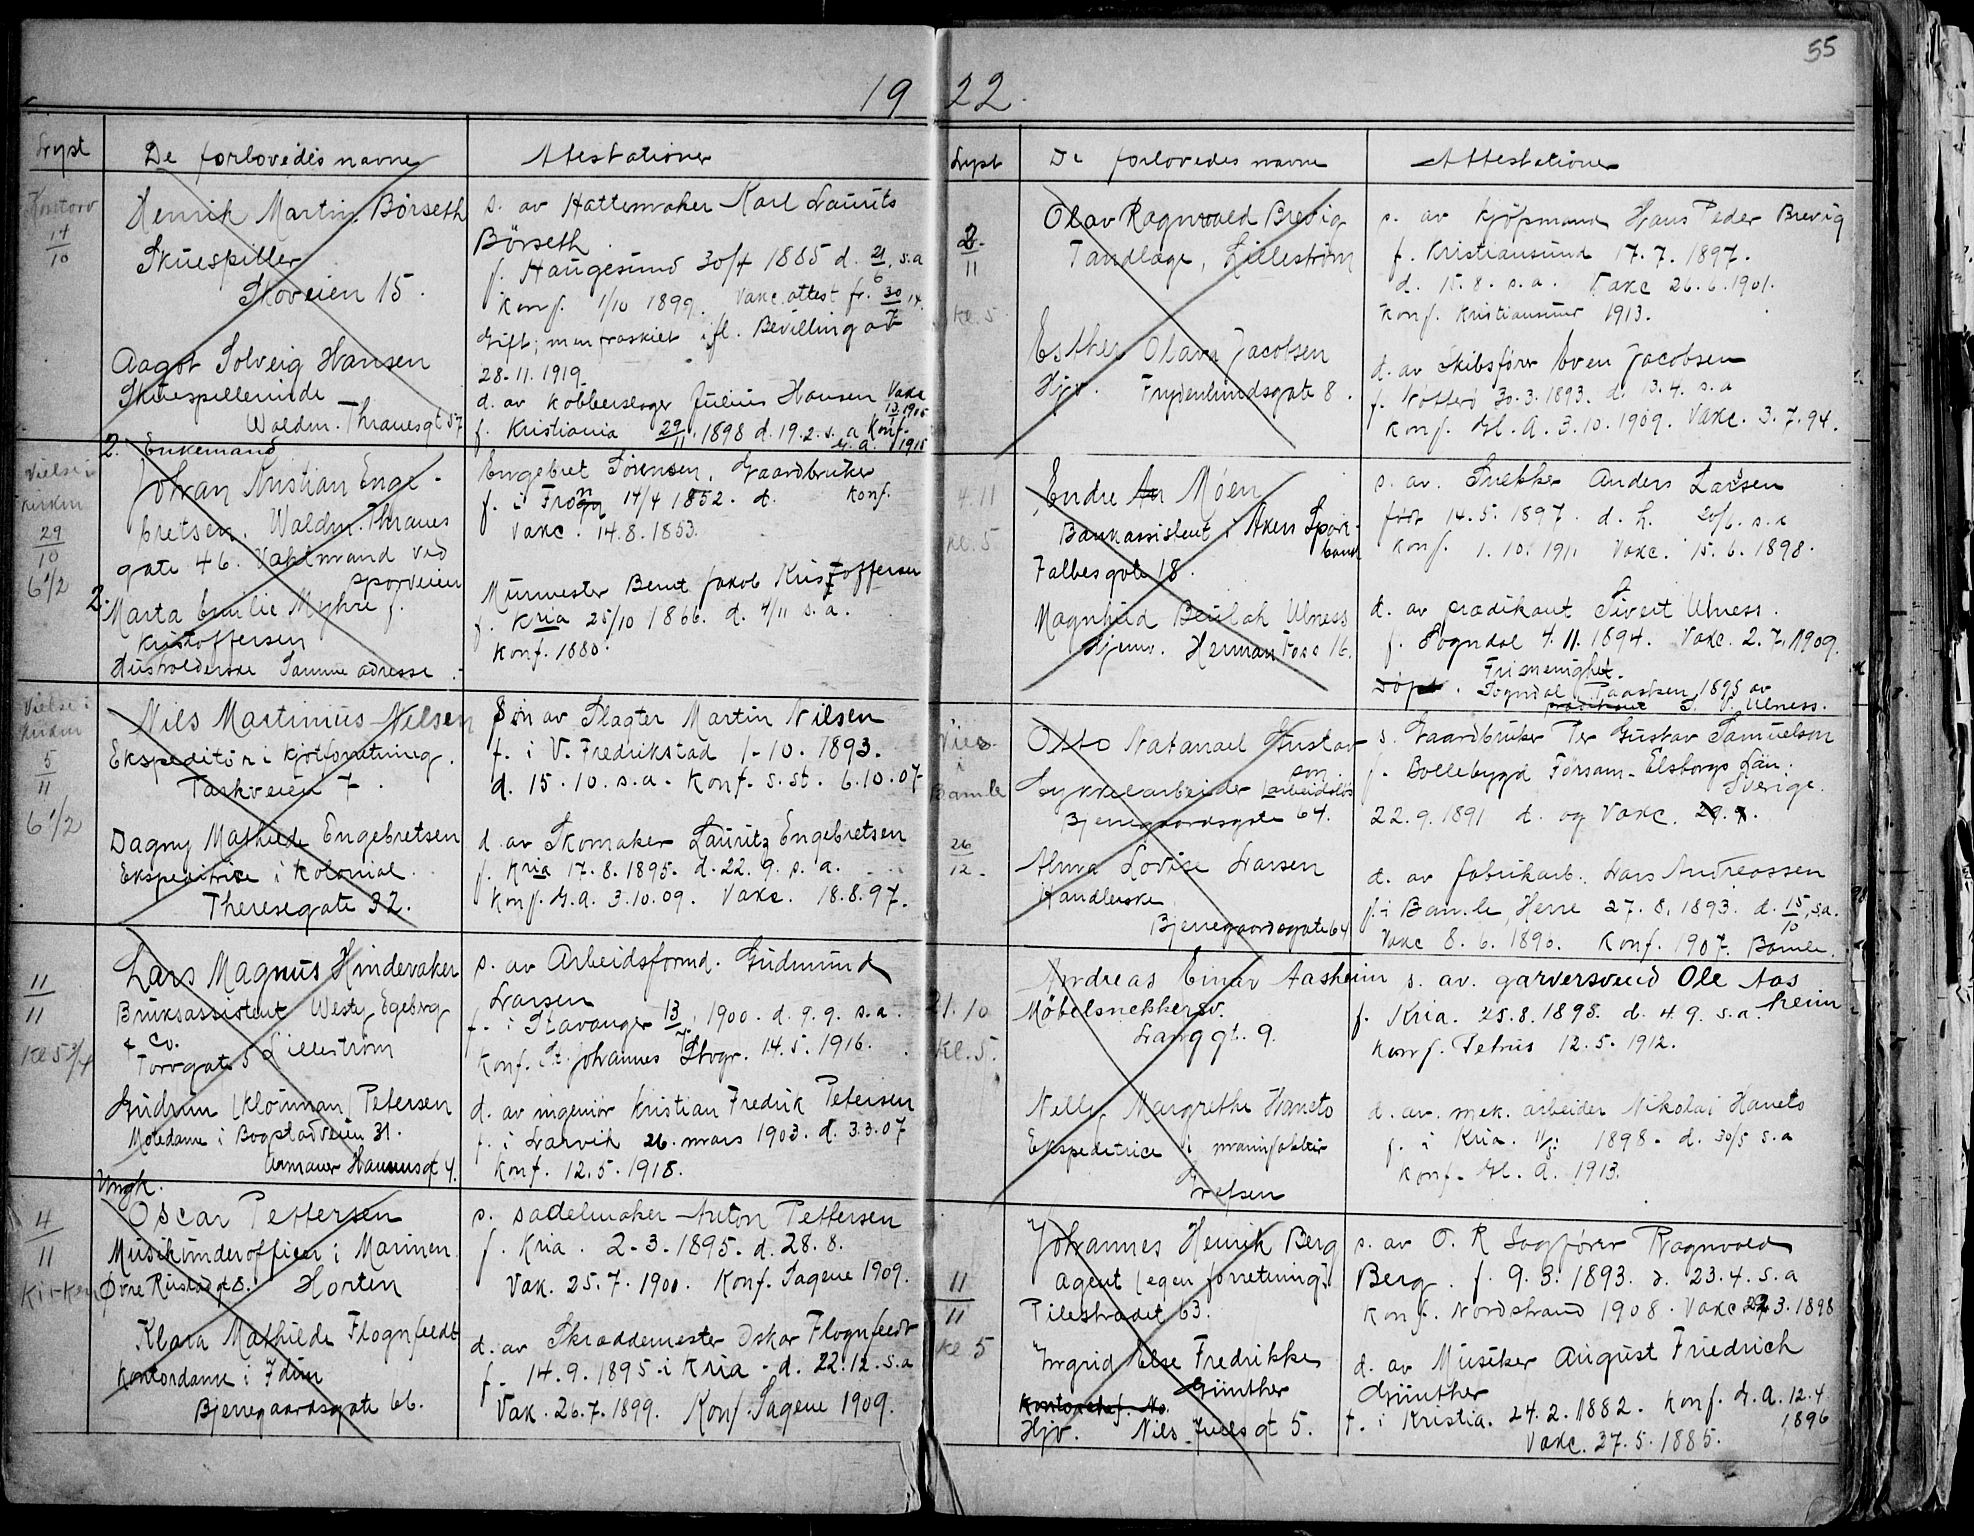 55
19 22.
Lyst De forlovedes navne Attestationer
Kontoro
14/10
Henrik Martin Börseth
Skuespiller
Skoveien 15.
s. av Hattemaker Karl Laurits
Börseth.
f. Haugesund 30/4 1885 d. 21/6 s.a
Konf. 1/10 1899. Vakc. attest fr. 30/7 14.
Gift; men fraskilt ifl. Bevilling av
28-11.1919.
Aagot Solveig Hansen
Skuespillerinde
Waldm. Thranesgt 57
d. av Kobberslager Julius Hansen Vakc
f. Kristiania 29/11 1898 d. 19.2. s. a Konf.
G.a. 1915
Vielse i
kirken
29/10
6 1/2
2. Enkemand
Johan Kristian Enge-
bretsen. Waldm. Thranes
gate 46. Vaktmand ved
Sporveien
Engebret Sörensen, Gaardbruker
f. i Frogn 14/4 1852. d. Konf.
Vakc. 14.8.1853.
2. Marta Emilie Myhre f.
Kristoffersen
Husholderske Samme adresse.
Murmester Bernt Jakob Kristoffersen
f. Kria 25/10 1866. d. 4/11 s.a.
Konf. 1880.
Vielse i
kirken
5/11
6 1/2
Nils Martinius Nilsen
Ekspeditör i kjötforretning.
Tærkveien 7.
Sön av Slagter Martin Nilsen
f. i V. Fredrikstad 1-10.1893.
d. 15.10.s.a. Konf. S.St. 6.10.07
Dagny Mathilde Engebretsen
Ekspeditrice i Kolonial.
Theresegate 32.
d. av Skomaker Lauritz Engebretsen
f. Kria 17.8.1895. d. 22.9. s. a.
Konf. G.a. 3.10.09. Vakc. 18.8.97.
11/11
Kl 5 3/4
Lars Magnus Hindevaker
Bruksassistent Westy Egeberg
& Co.
Torvgate 5 Lilleström
s. av Arbeidsformd. Gudmund
Larsen
f. i Stavanger 13/7 1900. d. 9.9. s.a.
Konf. St. Johannes Stvgr. 14.5.1916.
Gudrun (Klouman) Petersen
Motedame i Bogstadveien 31.
Armauer Hansensgt 4.
d. av ingeniör Kristian Fredrik Petersen
f. i Larvik 26. mars 1903. d. 3.3.07
Konf. 12.5.1918.
4/11
Kirken
Ungk.
Oscar Pettersen
Musikunderofficer i Marinen
Horten
s. sadelmaker Anton Pettersen
f. Kria. 2-3.1895. d. 28.8.
Vak. 25.7.1900. Konf. Sagene 1909.
Klara Mathilde Flognfeldt
Kontordame i Idun
Bjerregaardsgate 66.
d. av Skræddemester Oskar Flognfeldt
f. 14.9.1895 i Kria - d. 22.12.s.a
Vak. 26.7.1899. Konf. Sagene 1909.
Lyst De forlovedes navne Attestationer
2/11
Kl. 5
Olav Ragnvald Brevig
Tandlæge, Lilleström
s. av kjöpmand Hans Peder Brevig
f. Kristiansund 17.7.1897.
d. 15.8. s.a. Vakc 26.6.1901.
Konf. Kristiansund 1913.
Esther Olava Jacobsen
Hjv. Frydenlundsgate 8.
d. av Skibsförer Even Jacobsen
f. Nötterö 30.3.1893. d. 13.4. s.a
Konf. Gl. A. 3.10.1909. Vakc. 3.7.94.
4.11
Kl. 5
Endre An Möen
Bankassistent i Akers Spare-
bank
Falbesgate 18.
s. av. Snekker Anders Larsen
född 14.5.1897. d. h. 20/6. s.a
Konf. 1.10.1911 Vakc. 15.6.1898.
Magnhild Beulah Ulness
Hjemv. Herman Foss 16.
d. av prædikant Sivert Ulness.
f. Sogndal 4.11.1894. Vakc. 2.7.1909.
Frimenighet.
Döpt. Sogndal Paasken 1895 av
prædikant S. V. Ulness.
Vies
i
Bamle
26/12
Otto Natanael Gustav-
son
Sykkelarbeider (arbeidslös
Bjerregaardsgate 64.
s. Gaardbruker Per Gustav Samuelson
f. Bollebygd Försam. Elsborgs Län.
Sverige.
22.9.1891 d. og Vakc. 29.9.
Alma Lovise Larsen
Handlerske
Bjerregaardsgate 64
d. av fabrikarb. Lars Andreassen
f. i Bamle, Herre 27.8.1893. d. 15/10 s.a.
Vakc 8.6.1896. Konf. 1907. Bamle.
21.10
Kl. 5.
Andreas Einar Aasheim
Möbelsnekkersv.
Langgt. 9.
s. av. garversvend Ole Aas
heim
f. Kria. 25.8.1895. d. 4.9. s.a.
Konf. Petrus 12.5.1912.
Nelly Margrethe Haneto
Ekspeditrice i manufaktur
Grefsen
d. av. mek. arbeider Nikolai Haneto
f. i Kria. 1898. d. 30/5 s.a
Konf. Gl. A. 1913.
11/11
Kl 5
Johannes Henrik Berg
Agent (egen forretning).
Pilestrædet 63.
s. av O. R Sagförer Ragnvald
Berg. f. 9.3.1893. d. 23.4. s.a
Konf. Nordstrand 1908. Vakc 22.3.1898
Ingrid Else Fredrikke
Günther
Hjv. Nils Juels gt 5.
d. av Musiker August Friedrich
Günther
f. i Kristia. 24.2.1882. Konf. G.A. 12.4
1896
Vakc. 27.5.1885.